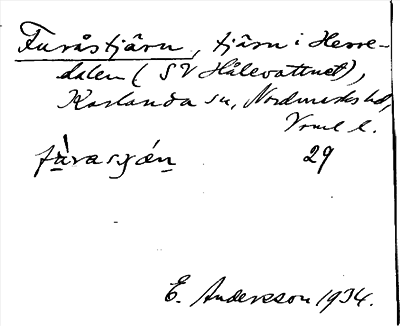 Furåstjärn, tjärn i Herre-
dalen (SV Hålevattnet),
Karlanda sn, Nordmarks hd,
Vrml l.
fu̠rasɟæn̠ 29
E. Andersson 1934.